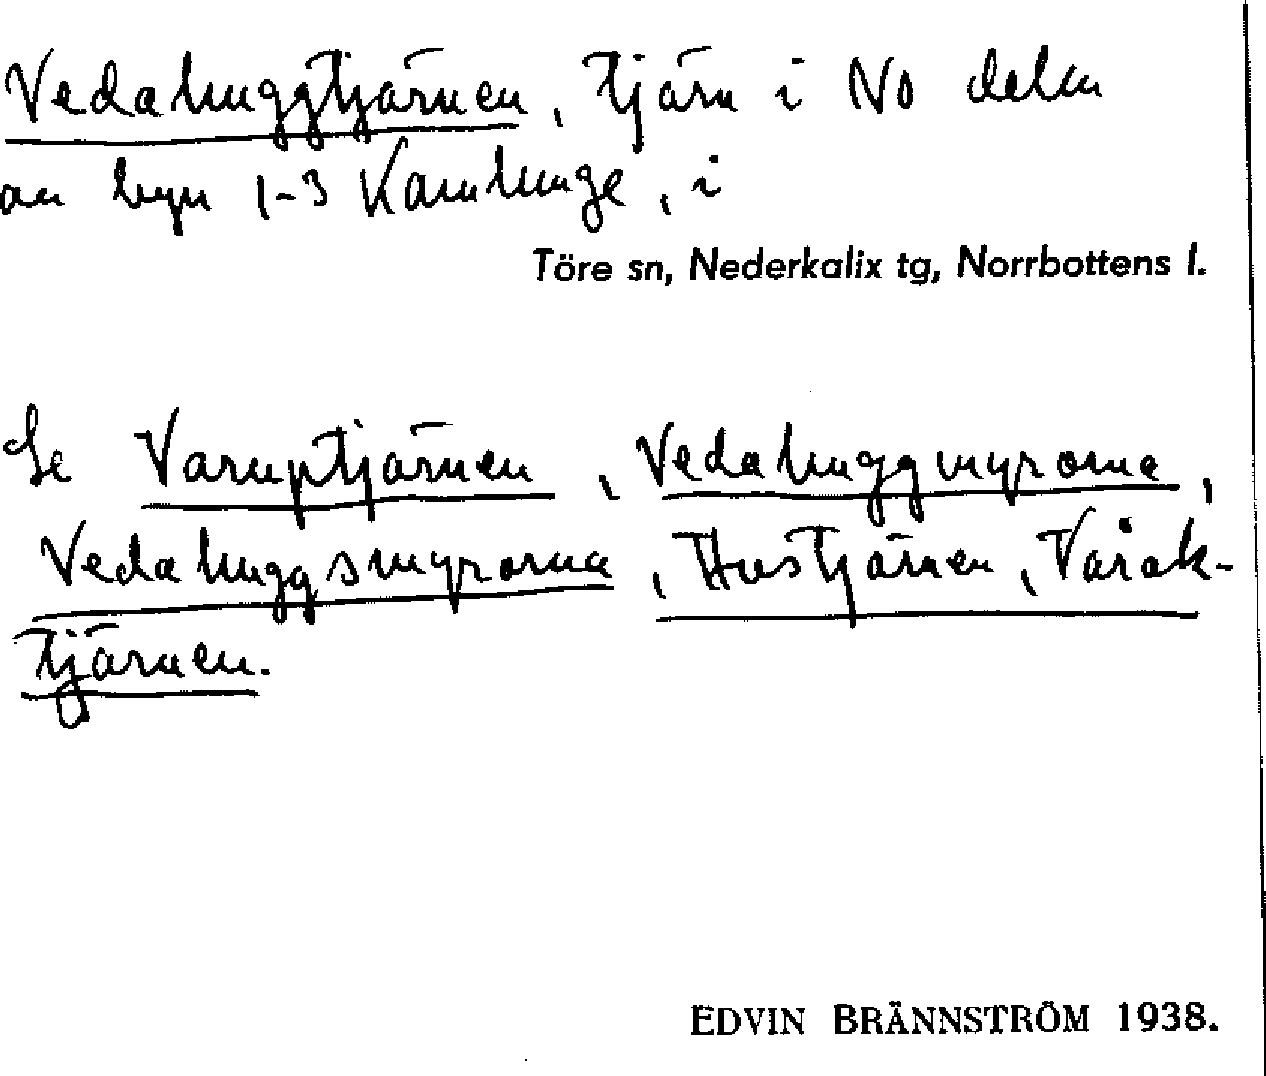 Vedahuggtjärnen, tjärn i NO delen
av byn 1-3 Kamlunge, i
Töre sn, Nederkalix tg, Norrbottens l.
Se Varuptjärnen, Vedahuggmyrorna,
Vedahuggsmyrorna, Hustjärnen, Varåk-
tjärnen.
EDVIN BRÄNNSTRÖM 1938.